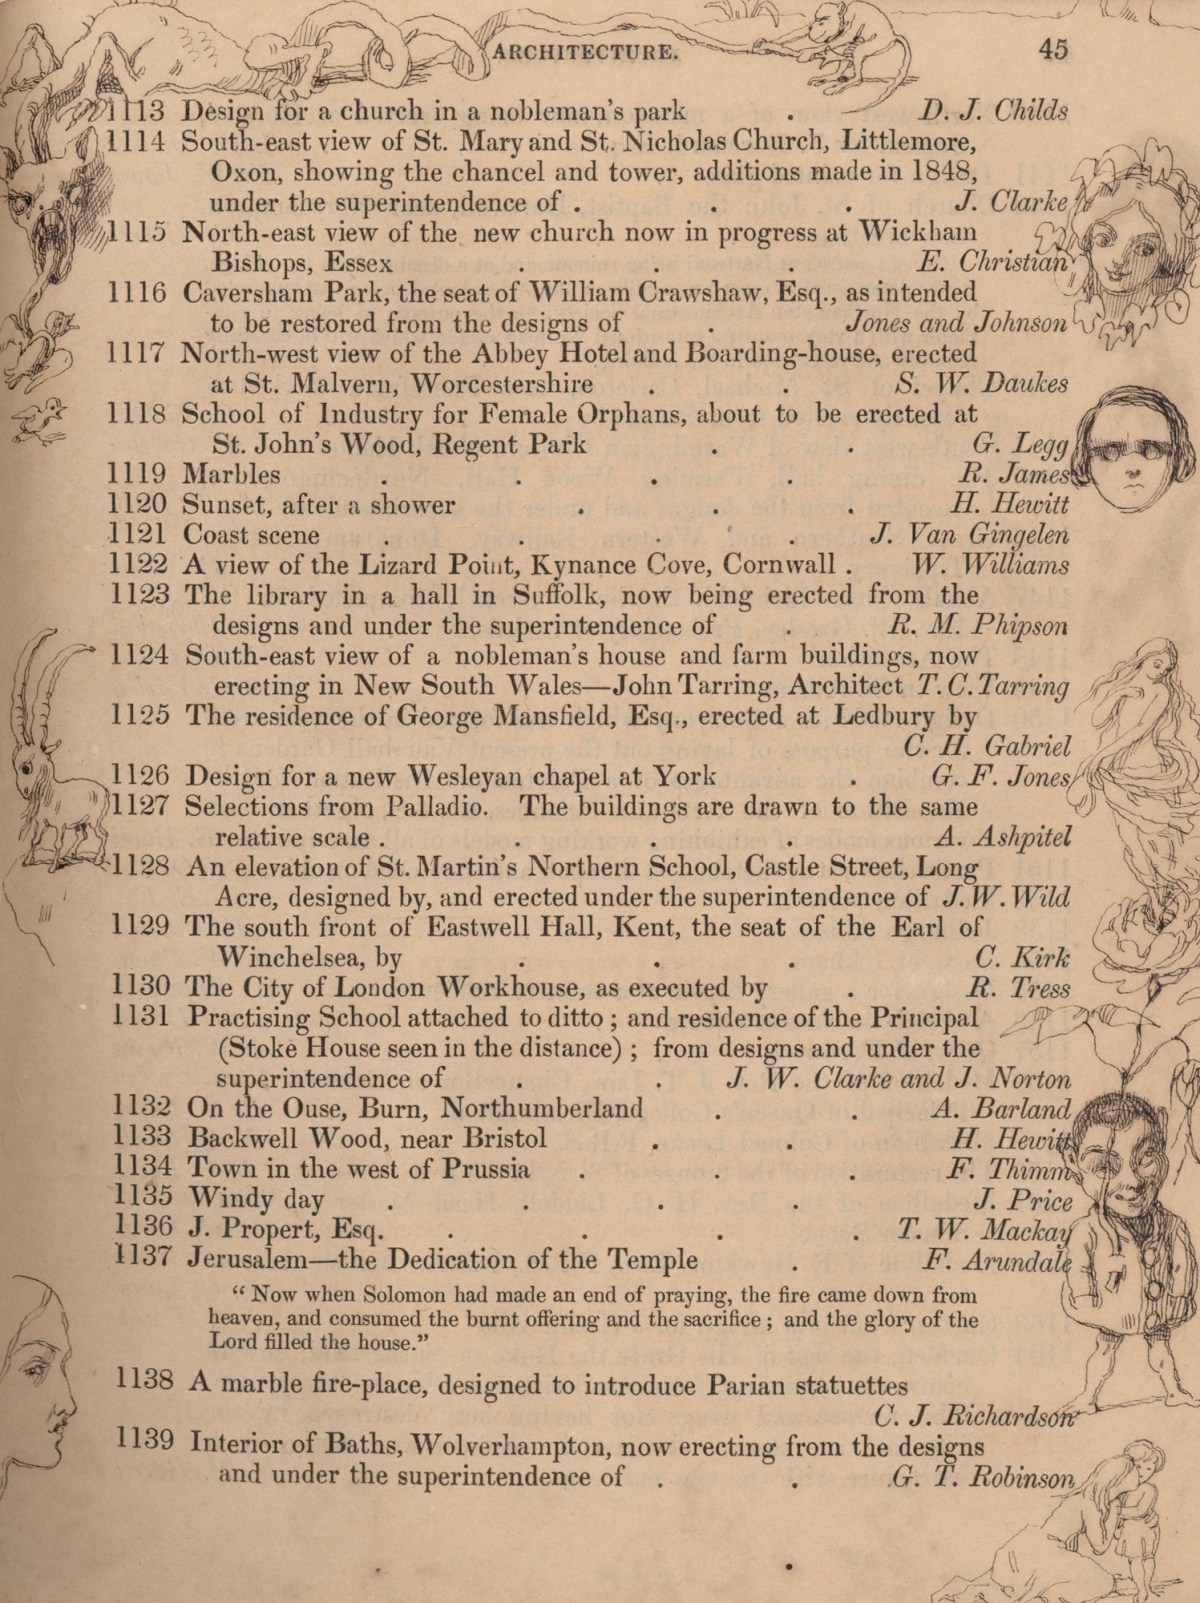 ARCHITECTURE. 45
1113 Design for a church in a nobleman's park . D. J. Childs
1114 South-east view of St. Mary and St. Nicholas Church, Littlemore,
Oxon, showing the chancel and tower, additions made in 1848,
under the superintendence of . . . J. Clarke
1115 North-east view of the new church now in progress at Wickham
Bishops, Essex . . . E. Christian
1116 Caversham Park, the seat of William Crawshaw, Esq., as intended
to be restored from the designs of . Jones and Johnson
1117 North-west view of the Abbey Hotel and Boarding-house, erected
at St. Malvern, Worcestershire . . S. W. Daukes
1118 School of Industry for Female Orphans, about to be erected at
St. John's Wood, Regent Park . . G. Legg
1119 Marbles . . . . R. James
1120 Sunset, after a shower . . . H. Hewitt
1121 Coast scene . . . . J. Van Gingelen
1122 A view of the Lizard Point, Kynance Cove, Cornwall . W. Williams
1123 The library in a hall in Suffolk, now being erected from the
designs and under the superintendence of . R. M. Phipson
1124 South-east view of a nobleman's house and farm buildings, now
erecting in New South Wales—John Tarring, Architect T. C. Tarring
1125 The residence of George Mansfield, Esq., erected at Ledbury by
C. H. Gabriel
1126 Design for a new Wesleyan chapel at York . G. F. Jones
1127 Selections from Palladio. The buildings are drawn to the same
relative scale . . . . A. Ashpitel
1128 An elevation of St. Martin's Northern School, Castle Street, Long
Acre, designed by, and erected under the superintendence of J. W. Wild
1129 The south front of Eastwell Hall, Kent, the seat of the Earl of
Winchelsea, by . . . C. Kirk
1130 The City of London Workhouse, as executed by . R. Tress
1131 Practising School attached to ditto ; and residence of the Principal
(Stoke House seen in the distance) ; from designs and under the
superintendence of . . J. W. Clarke and J. Norton
1132 On the Ouse, Burn, Northumberland . . A. Barland
1133 Backwell Wood, near Bristol . . H. Hewitt
1134 Town in the west of Prussia . . . F. Thimm
1135 Windy day . . . . J. Price
1136 J. Propert, Esq. . . . . T. W. Mackay
1137 Jerusalem—the Dedication of the Temple . F. Arundale
“ Now when Solomon had made an end of praying, the fire came down from
heaven, and consumed the burnt offering and the sacrifice ; and the glory of the
Lord filled the house.”
1138 A marble fire-place, designed to introduce Parian statuettes
C. J. Richardson
1139 Interior of Baths, Wolverhampton, now erecting from the designs
and under the superintendence of . . G. T. Robinson